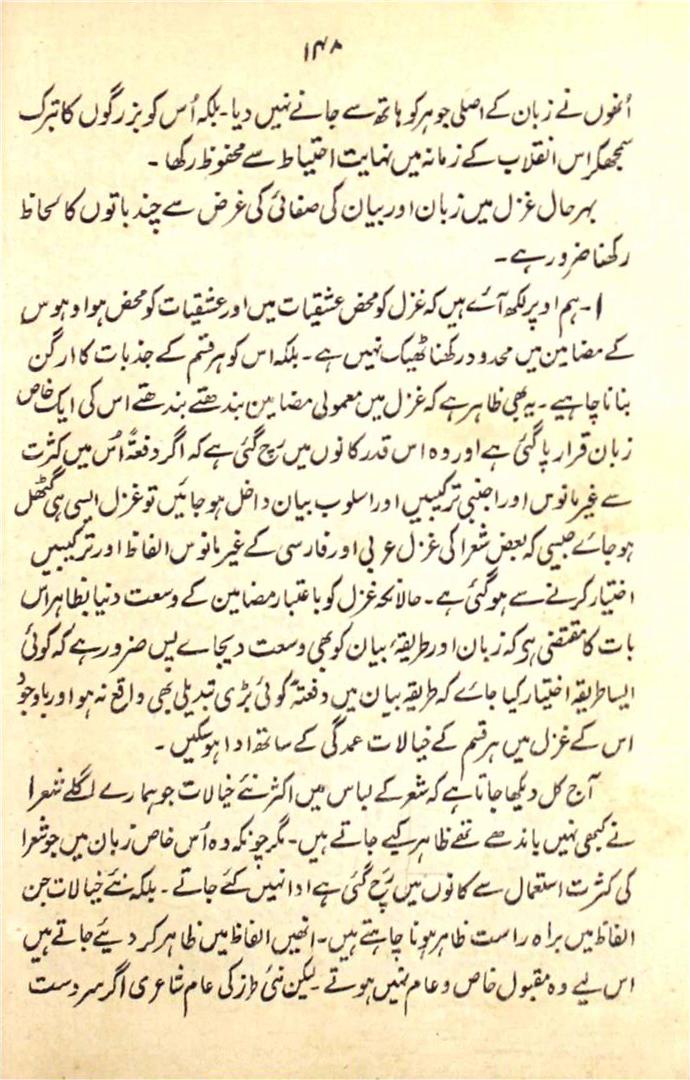 ۱۴۸
اُنھوں نے زبان کے اصلی جوہر کو ہاتھ سے جانے نہیں دیا۔ بلکہ اُس کو بزرگوں کا تبرک
سمجھکر اس انقلاب کے زمانہ میں نہایت احتیاط سے محفوظ رکھا۔
بہرحال غزل میں زبان اور بیان کی صفائی کی غرض سے چند باتوں کا لحاظ
رکھنا ضرور ہے۔
۱۔ ہم اوپر لکھ آئے ہیں کہ غزل کو محض عشقیات میں اور عشقیات کو محض ہوا و ہوس
کے مضامین میں محدود رکھنا ٹھیک نہیں ہے۔ بلکہ اس کو ہر قسم کے جذبات کا ارگن
بنانا چاہیے۔ یہ بھی ظاہر ہے کہ غزل میں معمولی مضامین بندھتے بندھتے اس کی ایک خاص
زبان قرار پا گئی ہے اور وہ اس قدر کانوں میں رَچ گئی ہے کہ اگر دفعۃً اُس میں کثرت
سے غیر مانوس اور اجنبی ترکیبیں اور اسلوب بیان داخل ہو جائیں تو غزل ایسی ہی گٹھل
ہو جائے جیسی کہ بعض شعرا کی غزل عربی اور فارسی کے غیر مانوس الفاظ اور ترکیبیں
اختیار کرنے سے ہو گئی ہے۔ حالانکہ غزل کو باعتبار مضامین کے وسعت دنیا بظاہر اس
بات کا مقتضی ہو کہ زبان اور طریقۂ بیان کو بھی وسعت دیجاے پس ضرور ہے کہ کوئی
ایسا طریقہ اختیار کیا جائے کہ طریقہ بیان میں دفعۃً کوئی بڑی تبدیلی بھی واقع نہ ہو اور باوجود
اس کے غزل میں ہر قسم کے خیالات عمدگی کے ساتھ ادا ہو سکیں۔
آج کل دیکھا جاتا ہے کہ شعر کے لباس میں اکثر نئے خیالات جو ہمارے اگلے شعرا
نے کبھی نہیں باندھے تھے ظاہر کیے جاتے ہیں۔ مگر چونکہ وہ اُس خاص زبان میں جو شعرا
کی کثرت استعمال سے کانوں میں رَچ گئی ہے ادا نہیں کئے جاتے۔ بلکہ نئے خیالات جن
الفاظ میں براہ راست ظاہر ہونا چاہتے ہیں۔ انھیں الفاظ میں ظاہر کر دیئے جاتے ہیں
اس لیے وہ مقبول خاص و عام نہیں ہوتے۔ لیکن نئی طرز کی عام شاعری اگر سردست